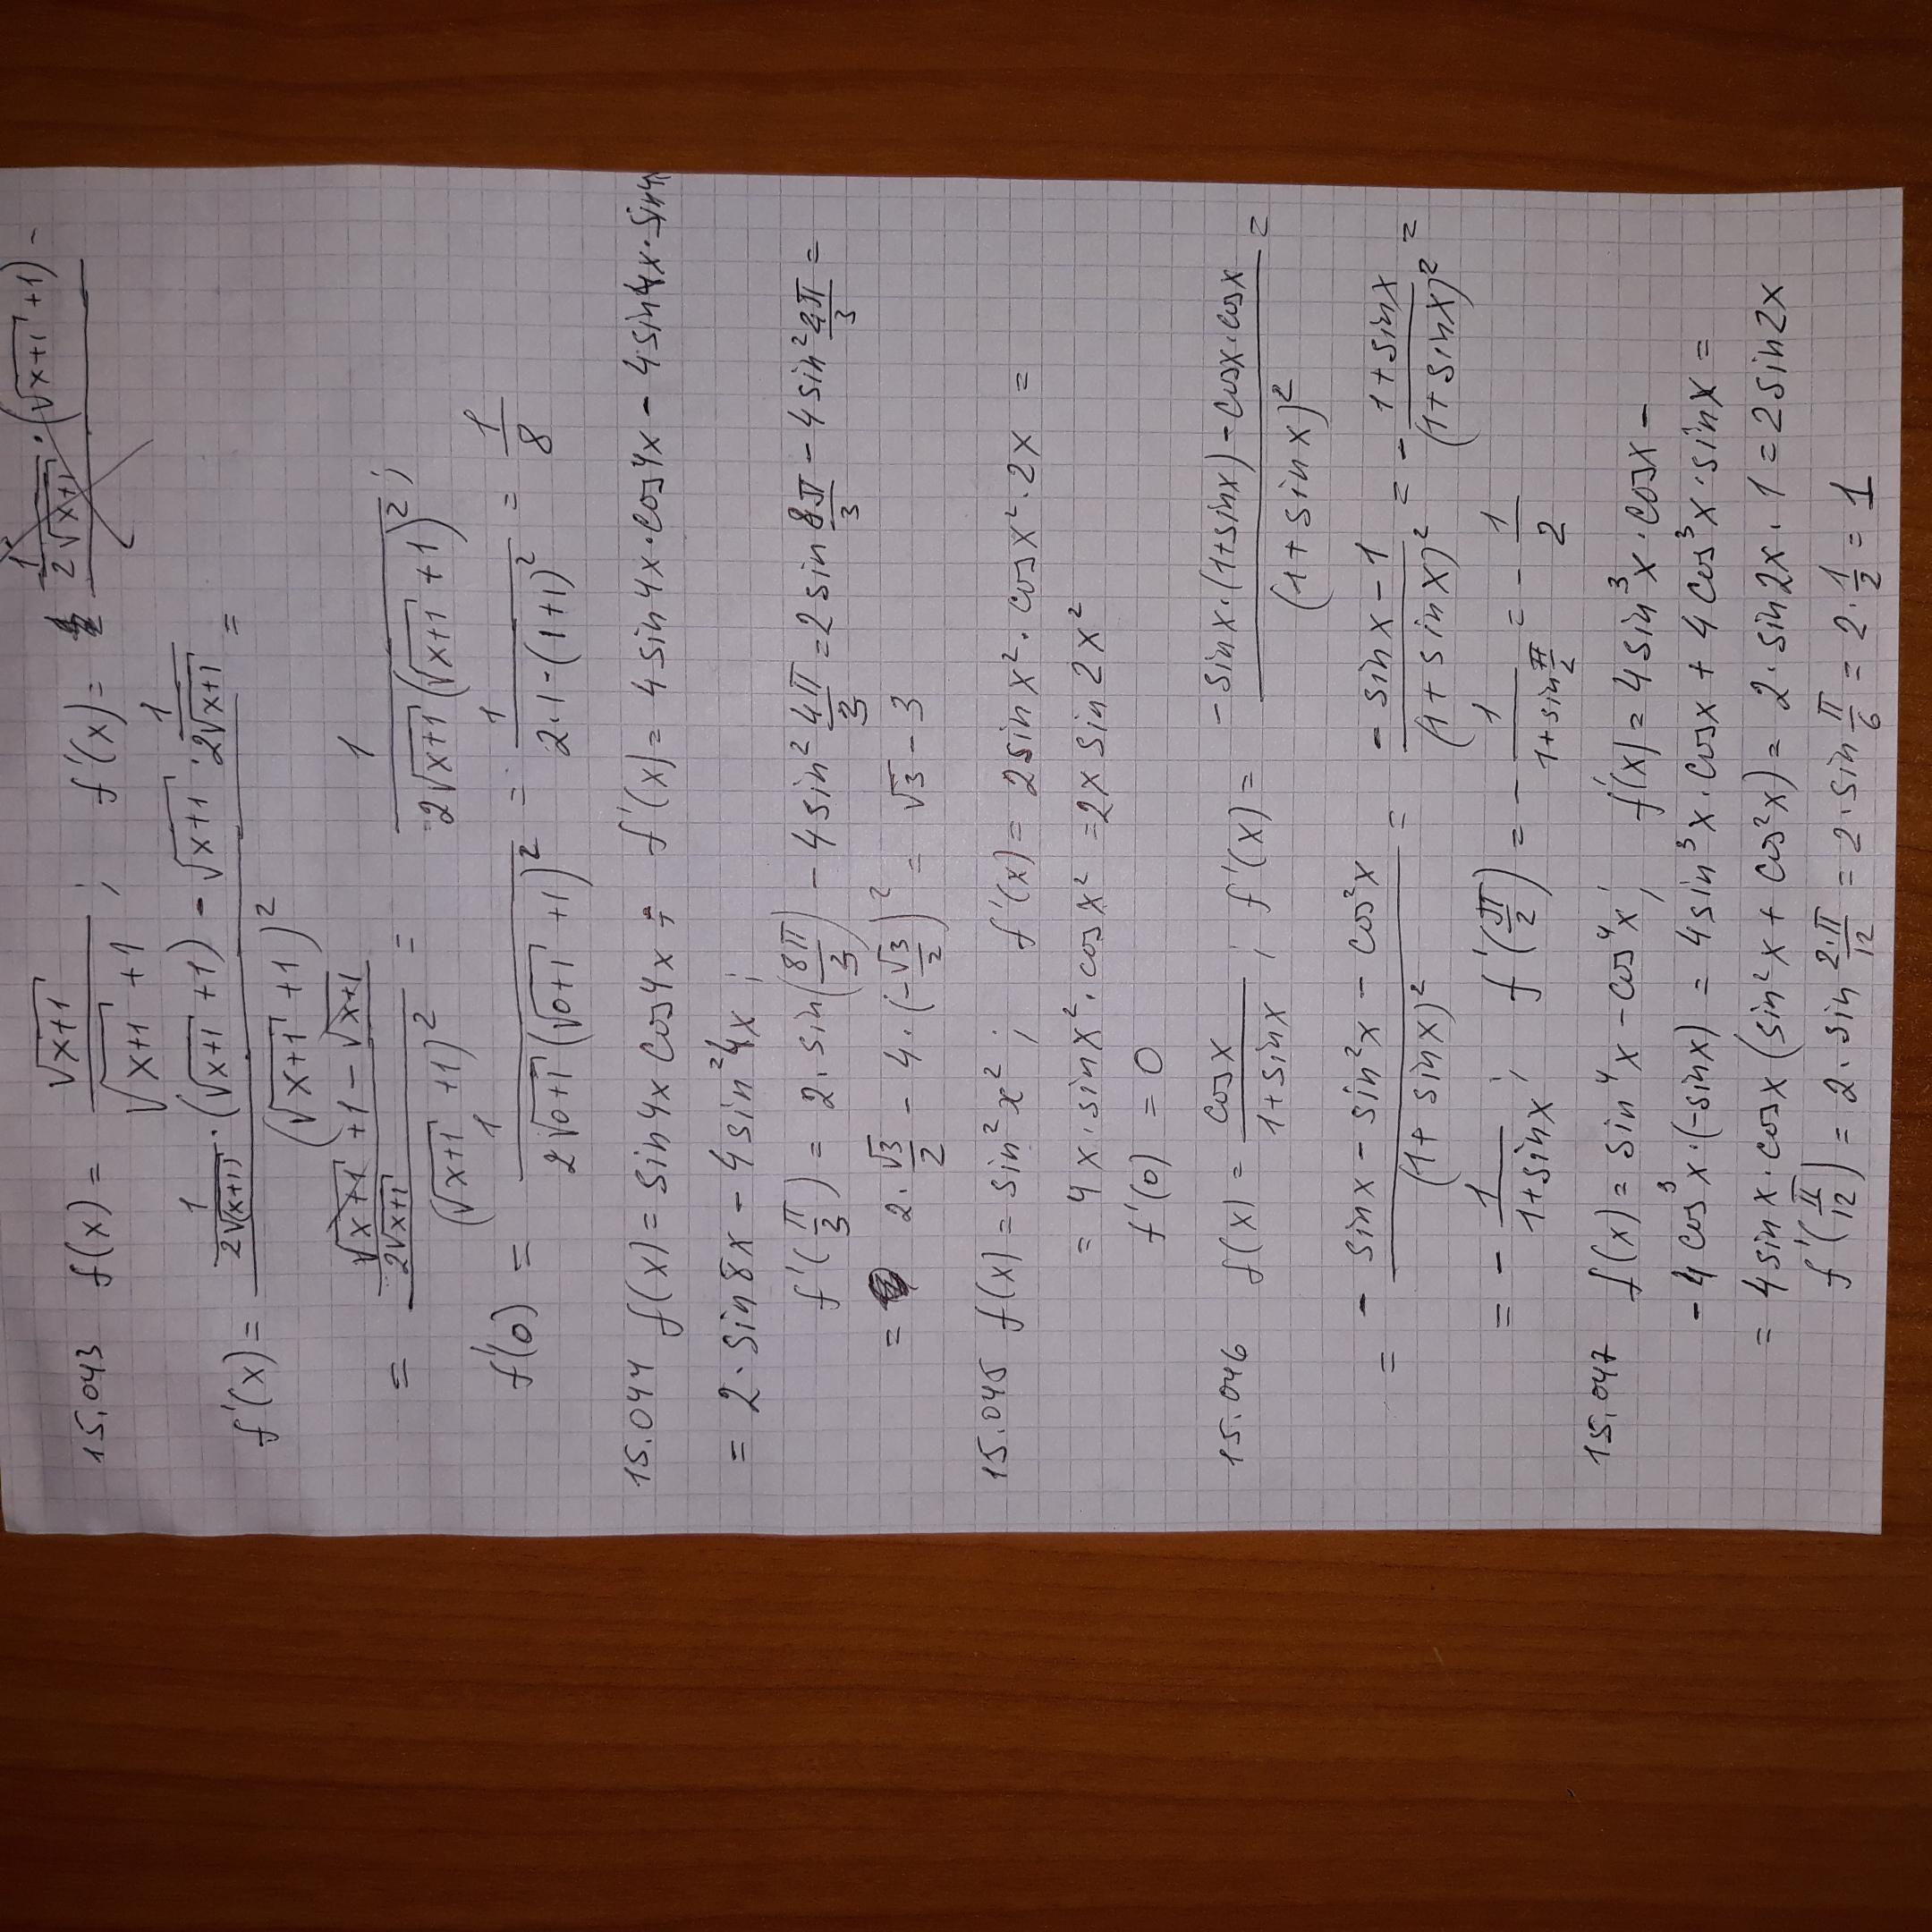 15.043 f(x) = √(x+1) / (√(x+1) + 1) ; f'(x) = 1/(2√(x+1)) · (√(x+1) + 1) -
f'(x) = (1/(2√(x+1)) · (√(x+1) + 1) - √(x+1) · 1/(2√(x+1))) / (√(x+1) + 1)² =
= ((√(x+1) + 1 - √(x+1)) / (2√(x+1))) / (√(x+1) + 1)² = 1 / (2√(x+1) (√(x+1) + 1)²) ;
f'(0) = 1 / (2√(0+1) (√(0+1) + 1)²) = 1 / (2·1·(1+1)²) = 1/8
15.044 f(x) = sin4x cos4x ; f'(x) = 4 sin4x · cos4x - 4 sin4x · sin4
= 2 · sin8x - 4 sin²4x ;
f'(π/3) = 2 · sin(8π/3) - 4 sin² 4π/3 = 2 sin 8π/3 - 4 sin² 4π/3 =
= 2 · √3/2 - 4 · (-√3/2)² = √3 - 3
15.045 f(x) = sin² x² ; f'(x) = 2 sin x² · cos x² · 2x =
= 4x · sin x² · cos x² = 2x sin 2x²
f'(0) = 0
15.046 f(x) = cosx / (1 + sinx) ; f'(x) = (- sinx · (1+sinx) - cosx · cosx) / (1 + sinx)² =
= (- sinx - sin²x - cos²x) / (1 + sinx)² = (- sinx - 1) / (1 + sinx)² = - (1 + sinx) / (1 + sinx)² =
= - 1/(1+sinx) ; f'(π/2) = - 1/(1 + sin π/2) = - 1/2
15.047 f(x) = sin⁴x - cos⁴x ; f'(x) = 4 sin³x · cosx -
- 4 cos³x · (-sinx) = 4 sin³x · cosx + 4 cos³x · sinx =
= 4 sinx · cosx (sin²x + cos²x) = 2 · sin2x · 1 = 2 sin2x
f'(π/12) = 2 · sin 2·π/12 = 2 · sin π/6 = 2 · 1/2 = 1